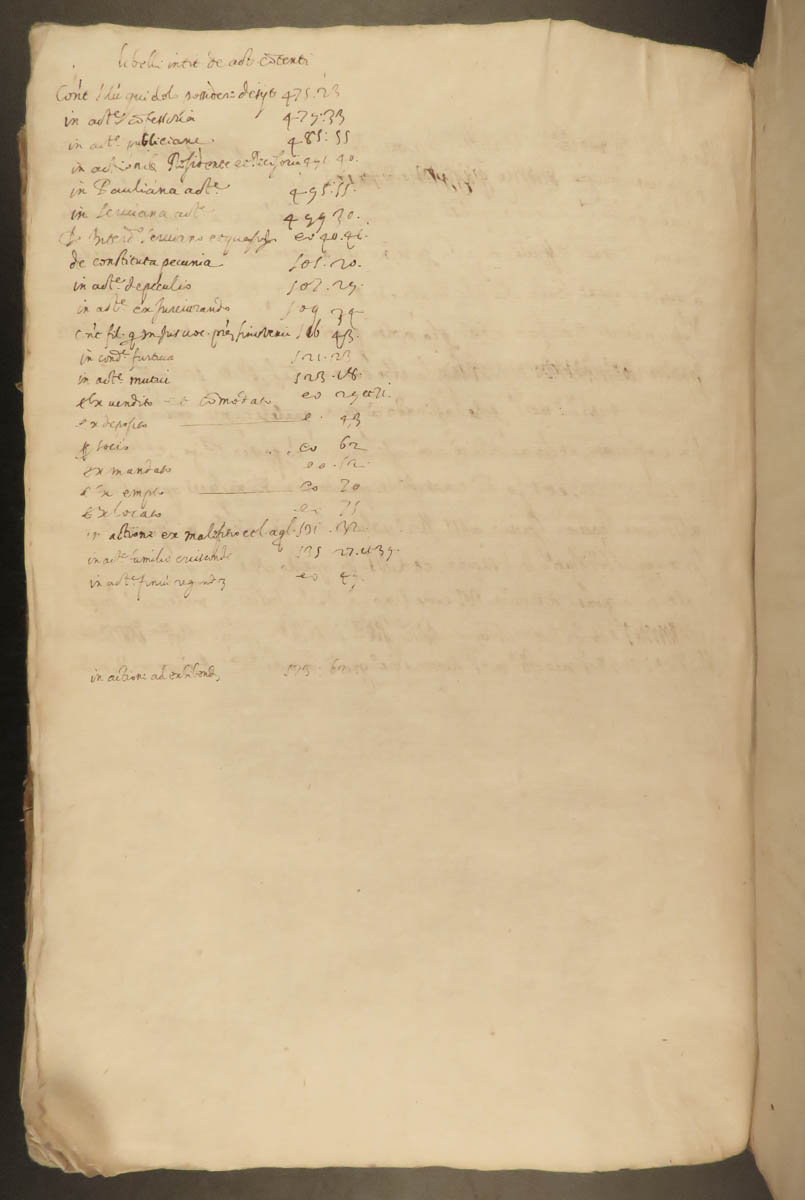 libelli intit de act contenti
Cont illū qui dolo possidere desyt 475. 23
in acte cōfessoria 479. 33
in acte publiciane 485. 55
in actionib 491 40.
in Pauliana acte 495. 55.
in Seruiana acte 499 30.
eo 40. 46.
de constituta pecunia 505. 20.
in acte de peculio 507. 29.
in acte ex Jureiurando 509 34
516 43.
in conde furtiua 521. 23
in acte mutui 523. 18.
ex vendito et Comodato eo 29 et
ex deposito e 43
p socio eo 62
ex mandato eo. 52.
ex empto eo 70
ex locato eo 75
in actione ex maleficio 531. 32.
in acte familie erciscunde 535 27. et 39.
in acte finiū regundoꝝ eo 49.
in action: ad exhibend, 573. 62